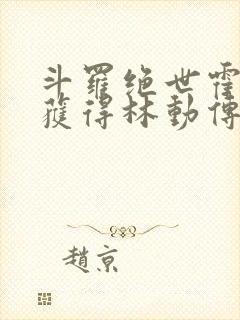 斗羅绝世霍
獲得林動傳
趙京